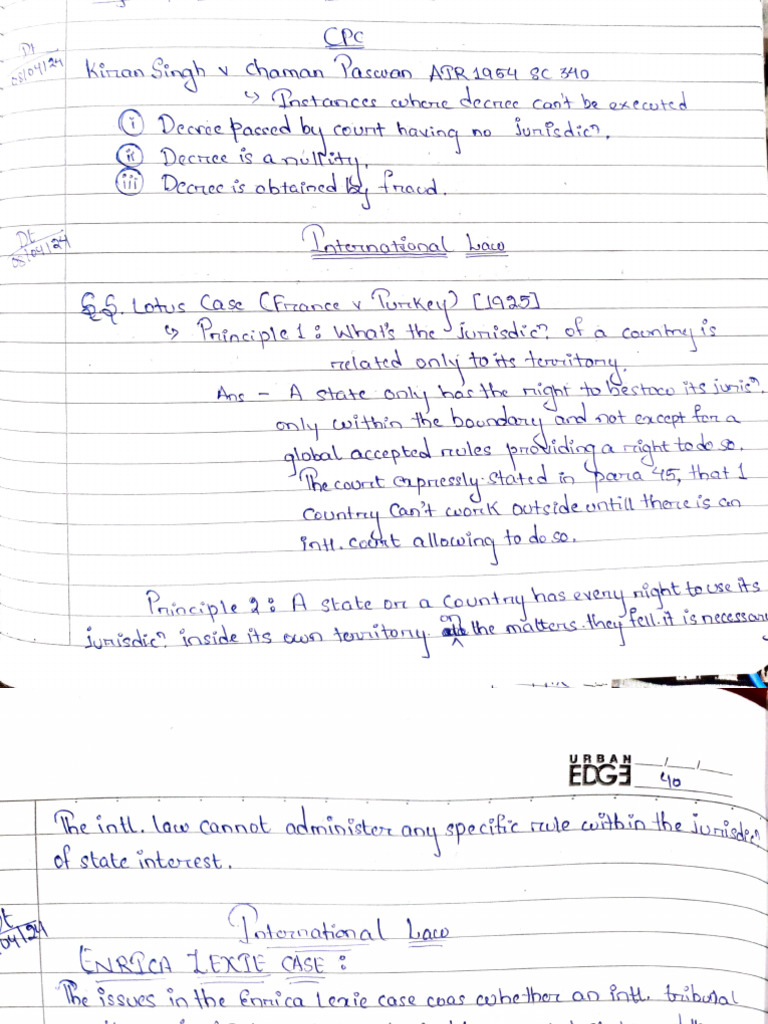 CPC
Dt
05/04/24
Kiran Singh v Chaman Paswan AIR 1954 SC 340
↳ Instances where decree can't be executed
(i) Decree passed by court having no jurisdicn.
(ii) Decree is a nullity.
(iii) Decree is obtained by fraud.
Dt
05/04/24
International Law
S.S. Lotus Case (France v Turkey) [1925]
↳ Principle 1: What's the jurisdicn of a country is
related only to its territory.
Ans - A state only has the right to bestow its jurisn.
only within the boundary and not except for a
global accepted rules providing a right to do so.
The court expressly stated in para 45, that 1
country can't work outside untill there is an
intl. court allowing to do so.
Principle 2: A state or a country has every right to use its
jurisdicn inside its own territory on the matters they fell it is necessary
URBAN
EDGE
40
The intl. law cannot administer any specific rule within the jurisdicn
of state interest.
International Law
ENRICA LEXIE CASE:
The issues in the Enrica Lexie case was whether an intl. tribunal